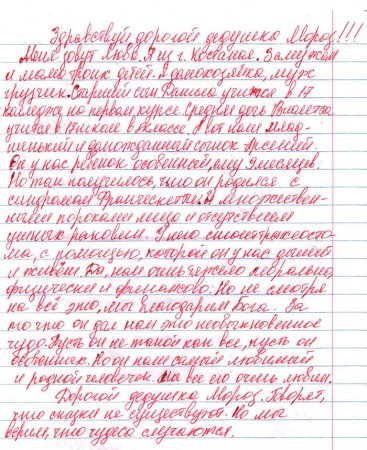 Здравствуй дорогой дедушка Мороз!!!
Меня зовут Люба. Я из г. Костаная. Замужем
и мама троих детей. Я домохозяйка, муж
грузчик. Старший сын Данила учится в 17
колледже на первом курсе. Средняя дочь Виолетта
учится в школе в классе. А вот наш млад-
шенький и долгожданный сынок Арсений.
Он у нас ребёнок особенный, ему 9 месяцев.
Но так получилось, что он родился с
синдромом Франческетти. И множествен-
ными пороками лица и отсутствием
ушных раковин. У него стоит трахеосто-
ма, с помощью, которой он у нас дышит
и живёт. Да, нам очень тяжело морально
физически и финансово. Но не смотря
на всё это, мы благодарим Бога. За
то что он дал нам это необыкновенное
чудо. Пусть он не такой как все, пусть он
особенный. Но он нам самый любимый
и родной человечек. Мы все его очень любим.
Дорогой дедушка Мороз. Говорят,
что сказки не существуют. Но мы
верим, что чудеса случаются.